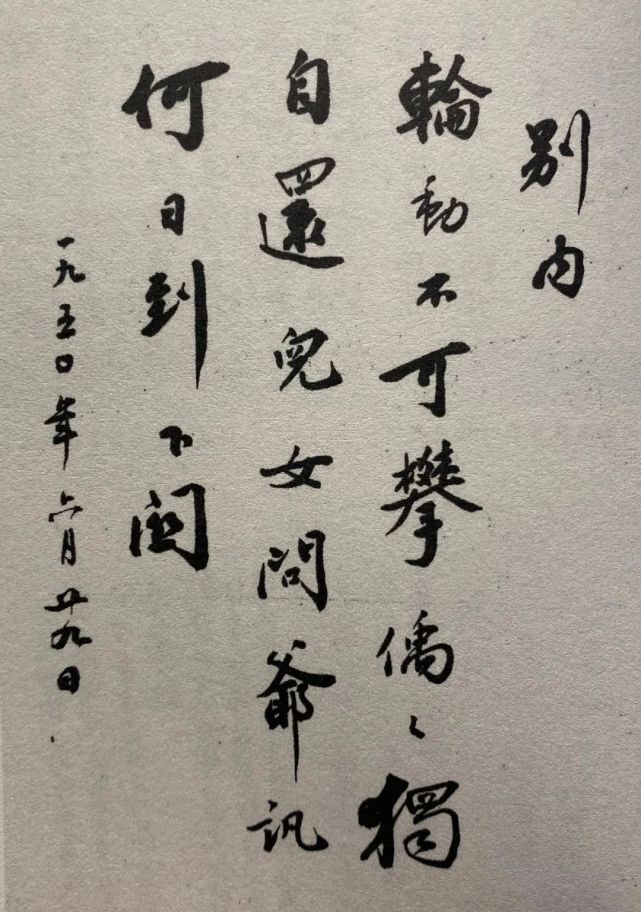 別内
輪動不可攀儒〻獨
自還兒女問爺訊
何日到下関
一九五〇年六月廿九日